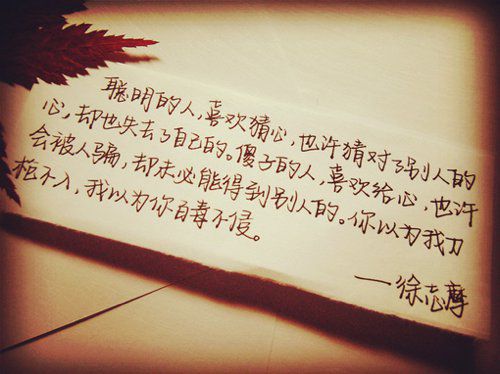 聪明的人，喜欢猜心，也许猜对了别人的
心，却也失去了自己的。傻子的人，喜欢给心，也许
会被人骗，却未必能得到别人的。你以为我刀
枪不入，我以为你百毒不侵。
—徐志摩